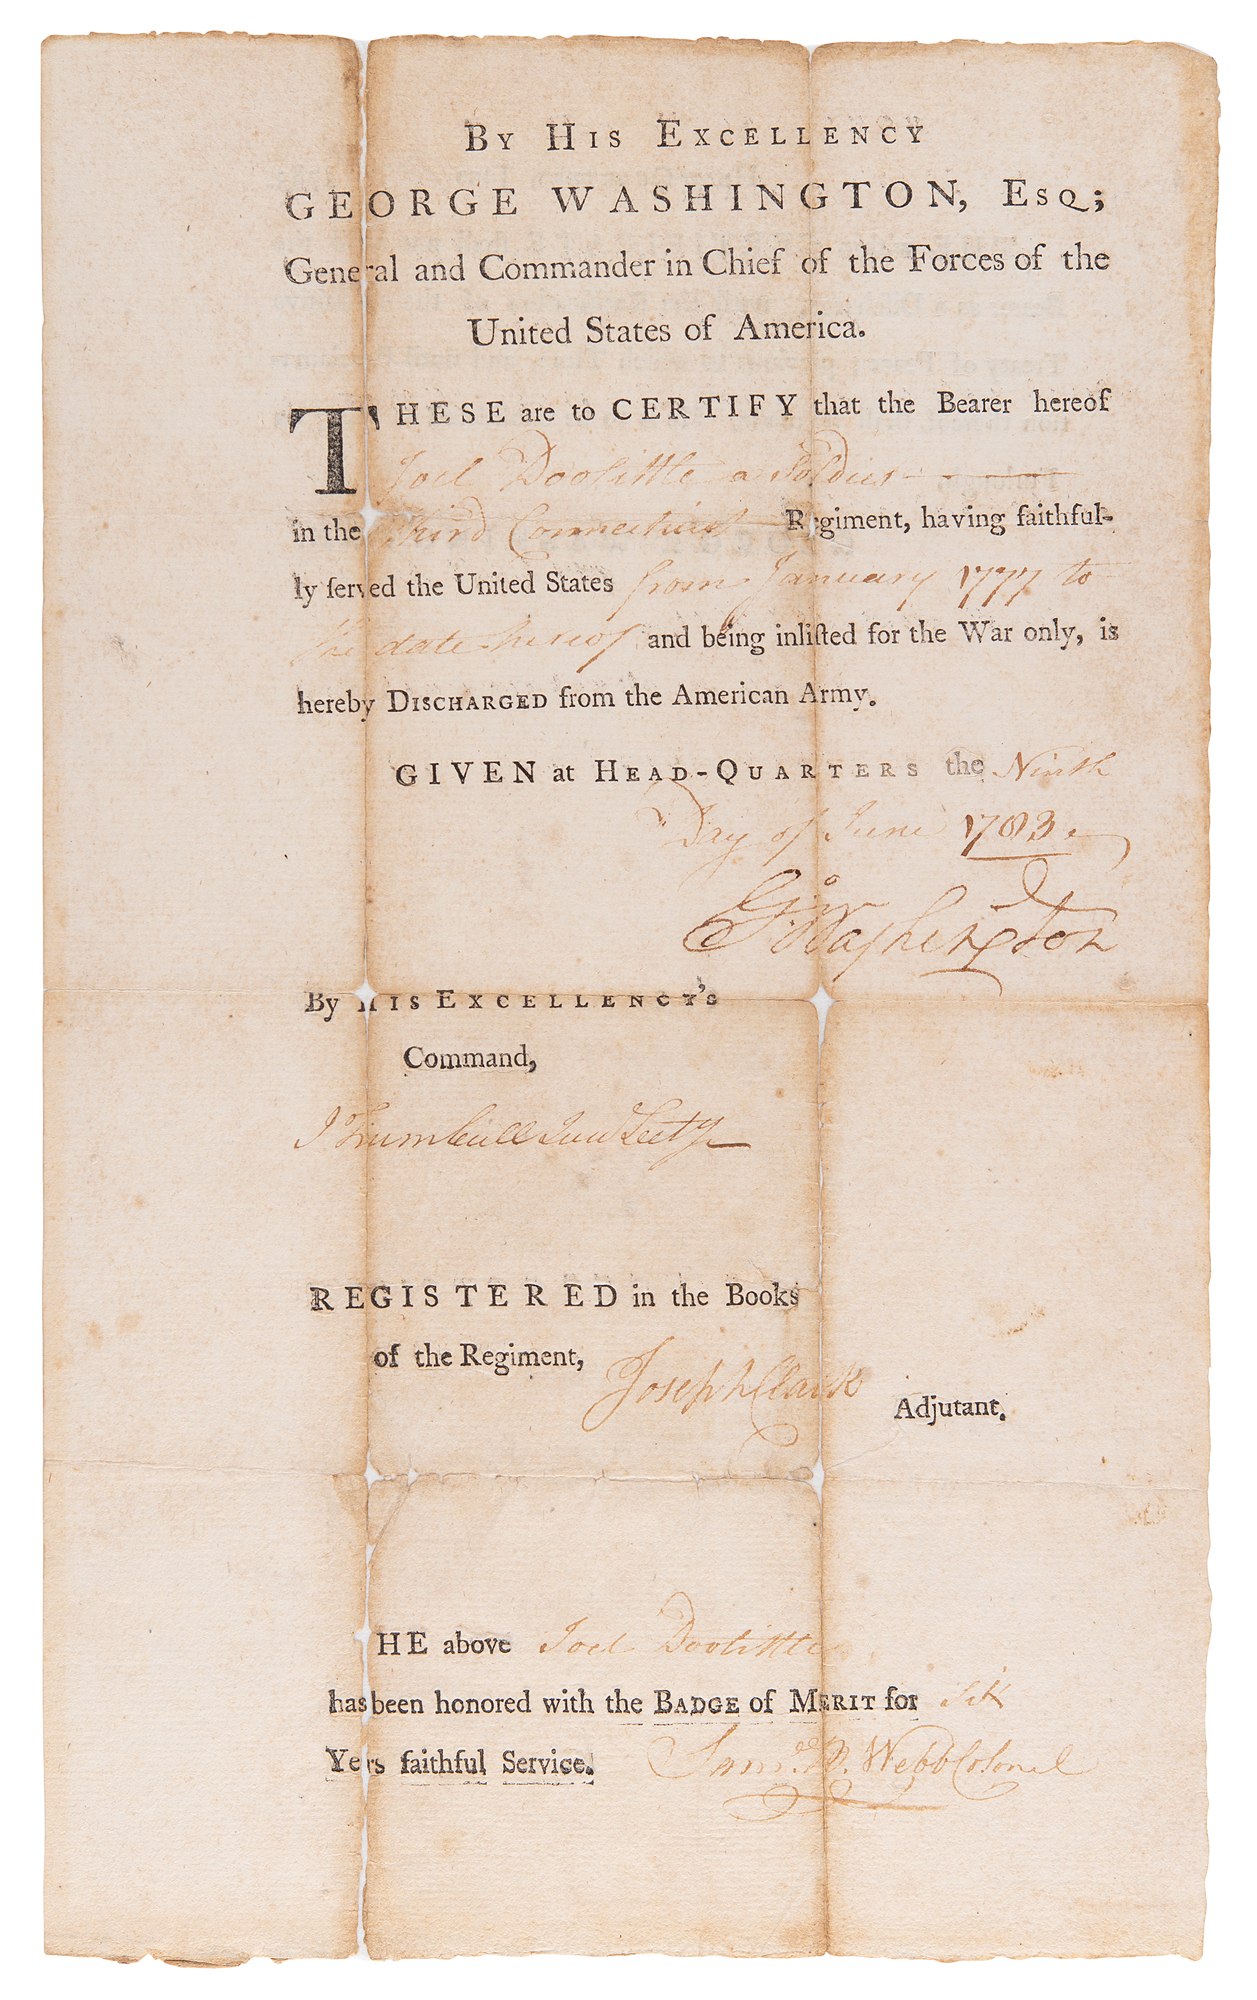 By His Excellency
GEORGE WASHINGTON, Esq;
General and Commander in Chief of the Forces of the
United States of America.
THESE are to CERTIFY that the Bearer hereof
Joel Doolittle a Soldier
in the Third Connecticut Regiment, having faithful-
ly ſerved the United States from January 1777 to
the date hereof and being inliſted for the War only, is
hereby Discharged from the American Army.
GIVEN at Head-Quarters the Ninth
Day of June 1783.
Go: Washington
By His Excellency's
Command,
J Trumbull Jun Secty
REGISTERED in the Books
of the Regiment,
Joseph Clark
Adjutant.
HE above Joel Doolittle
has been honored with the Badge of Merit for Six
Yers faithful Service. Sam. B. Webb Colonel